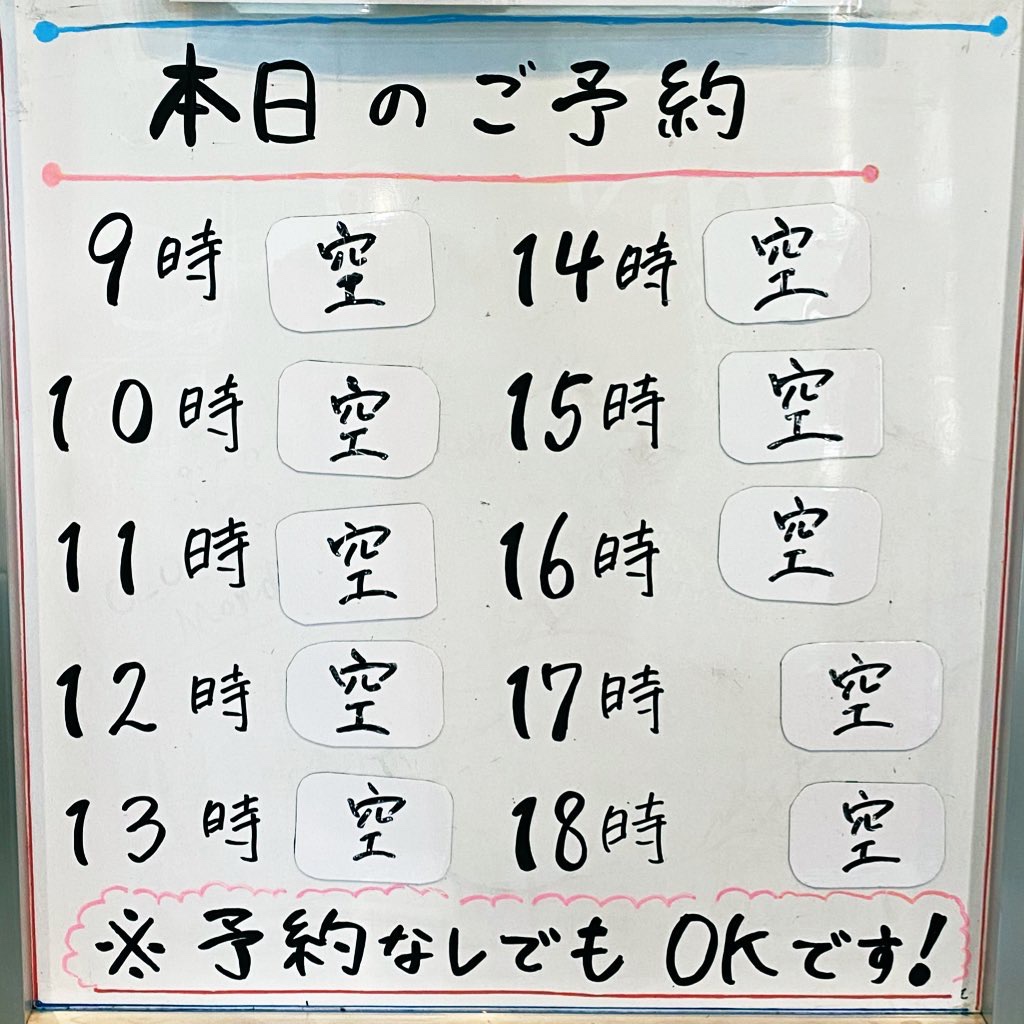 本日のご予約
9時 空 14時 空
10時 空 15時 空
11時 空 16時 空
12時 空 17時 空
13時 空 18時 空
※予約なしでもOKです!